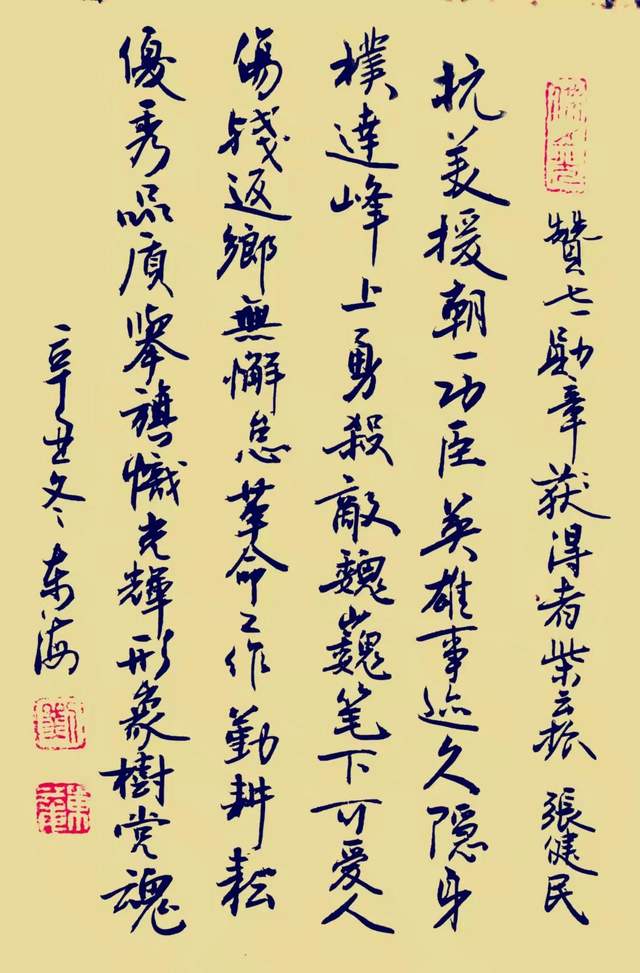 贊七一勛章获得者柴云振 張健民
抗美援朝一功臣英雄事迹久隱身
樸達峰上勇殺敵魏巍笔下可爱人
傷殘返鄉無懈怠革命工作勤耕耘
優秀品质舉旗幟光輝形象樹党魂
辛丑冬东海